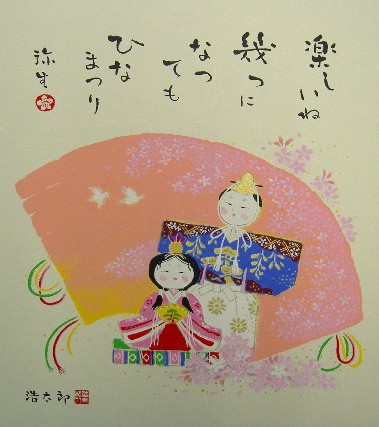 楽しいね
幾つに
なつ
ても
ひな
まつり
弥生
浩太郎